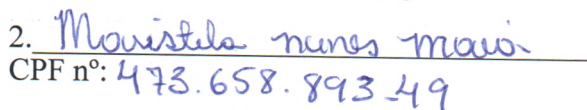 2. Maristela nunes maia
CPF nº: 473.658.893-49